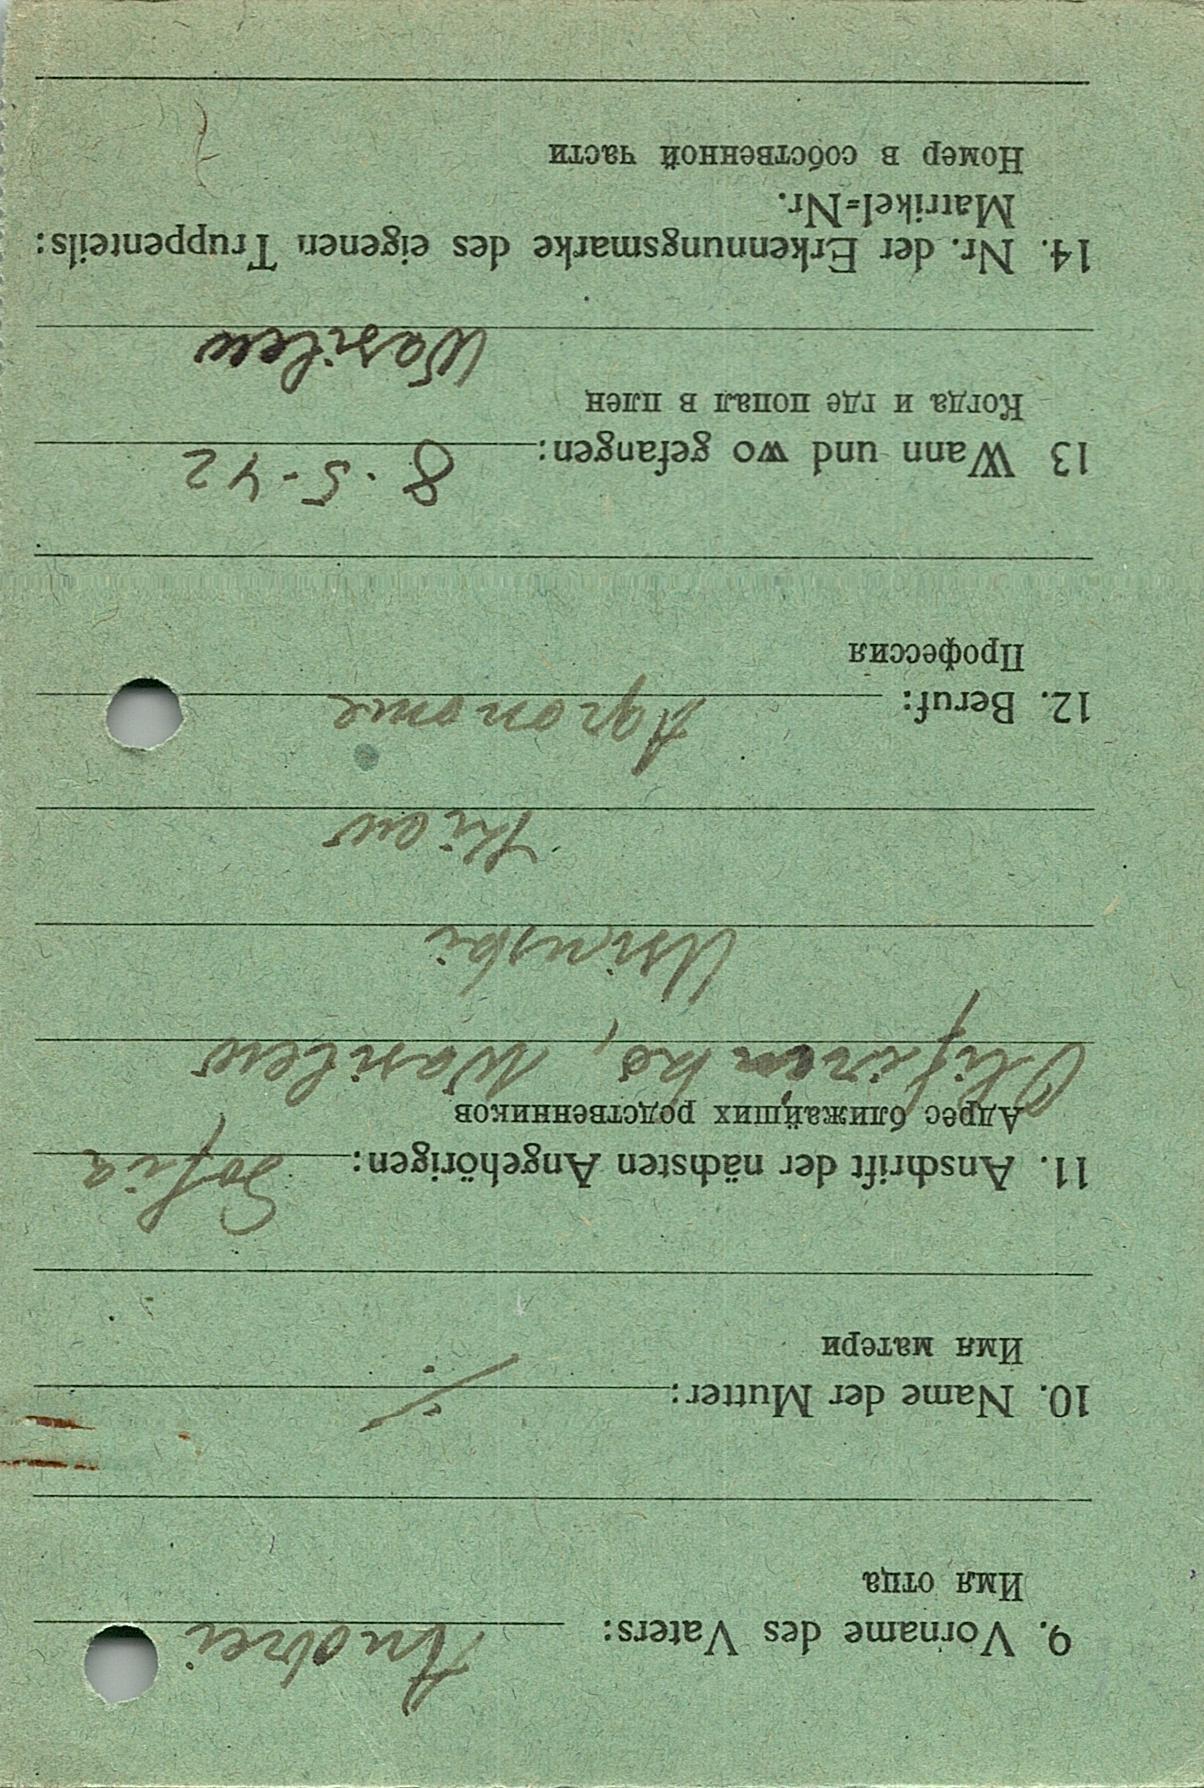 9. Vorname des Vaters: Andrei
Имя отца
10. Name der Mutter: ·/.
Имя матери
11. Anschrift der nächsten Angehörigen: Sofia
Адрес ближайших родственников
Olifirenko, Wasilew
Usinski
Kiew
12. Beruf: Agronome
Профессия
13 Wann und wo gefangen: 8.5.42
Когда и где попал в плен
Wasilew
14. Nr. der Erkennungsmarke des eigenen Truppenteils:
Matrikel=Nr.
Номер в собственной части